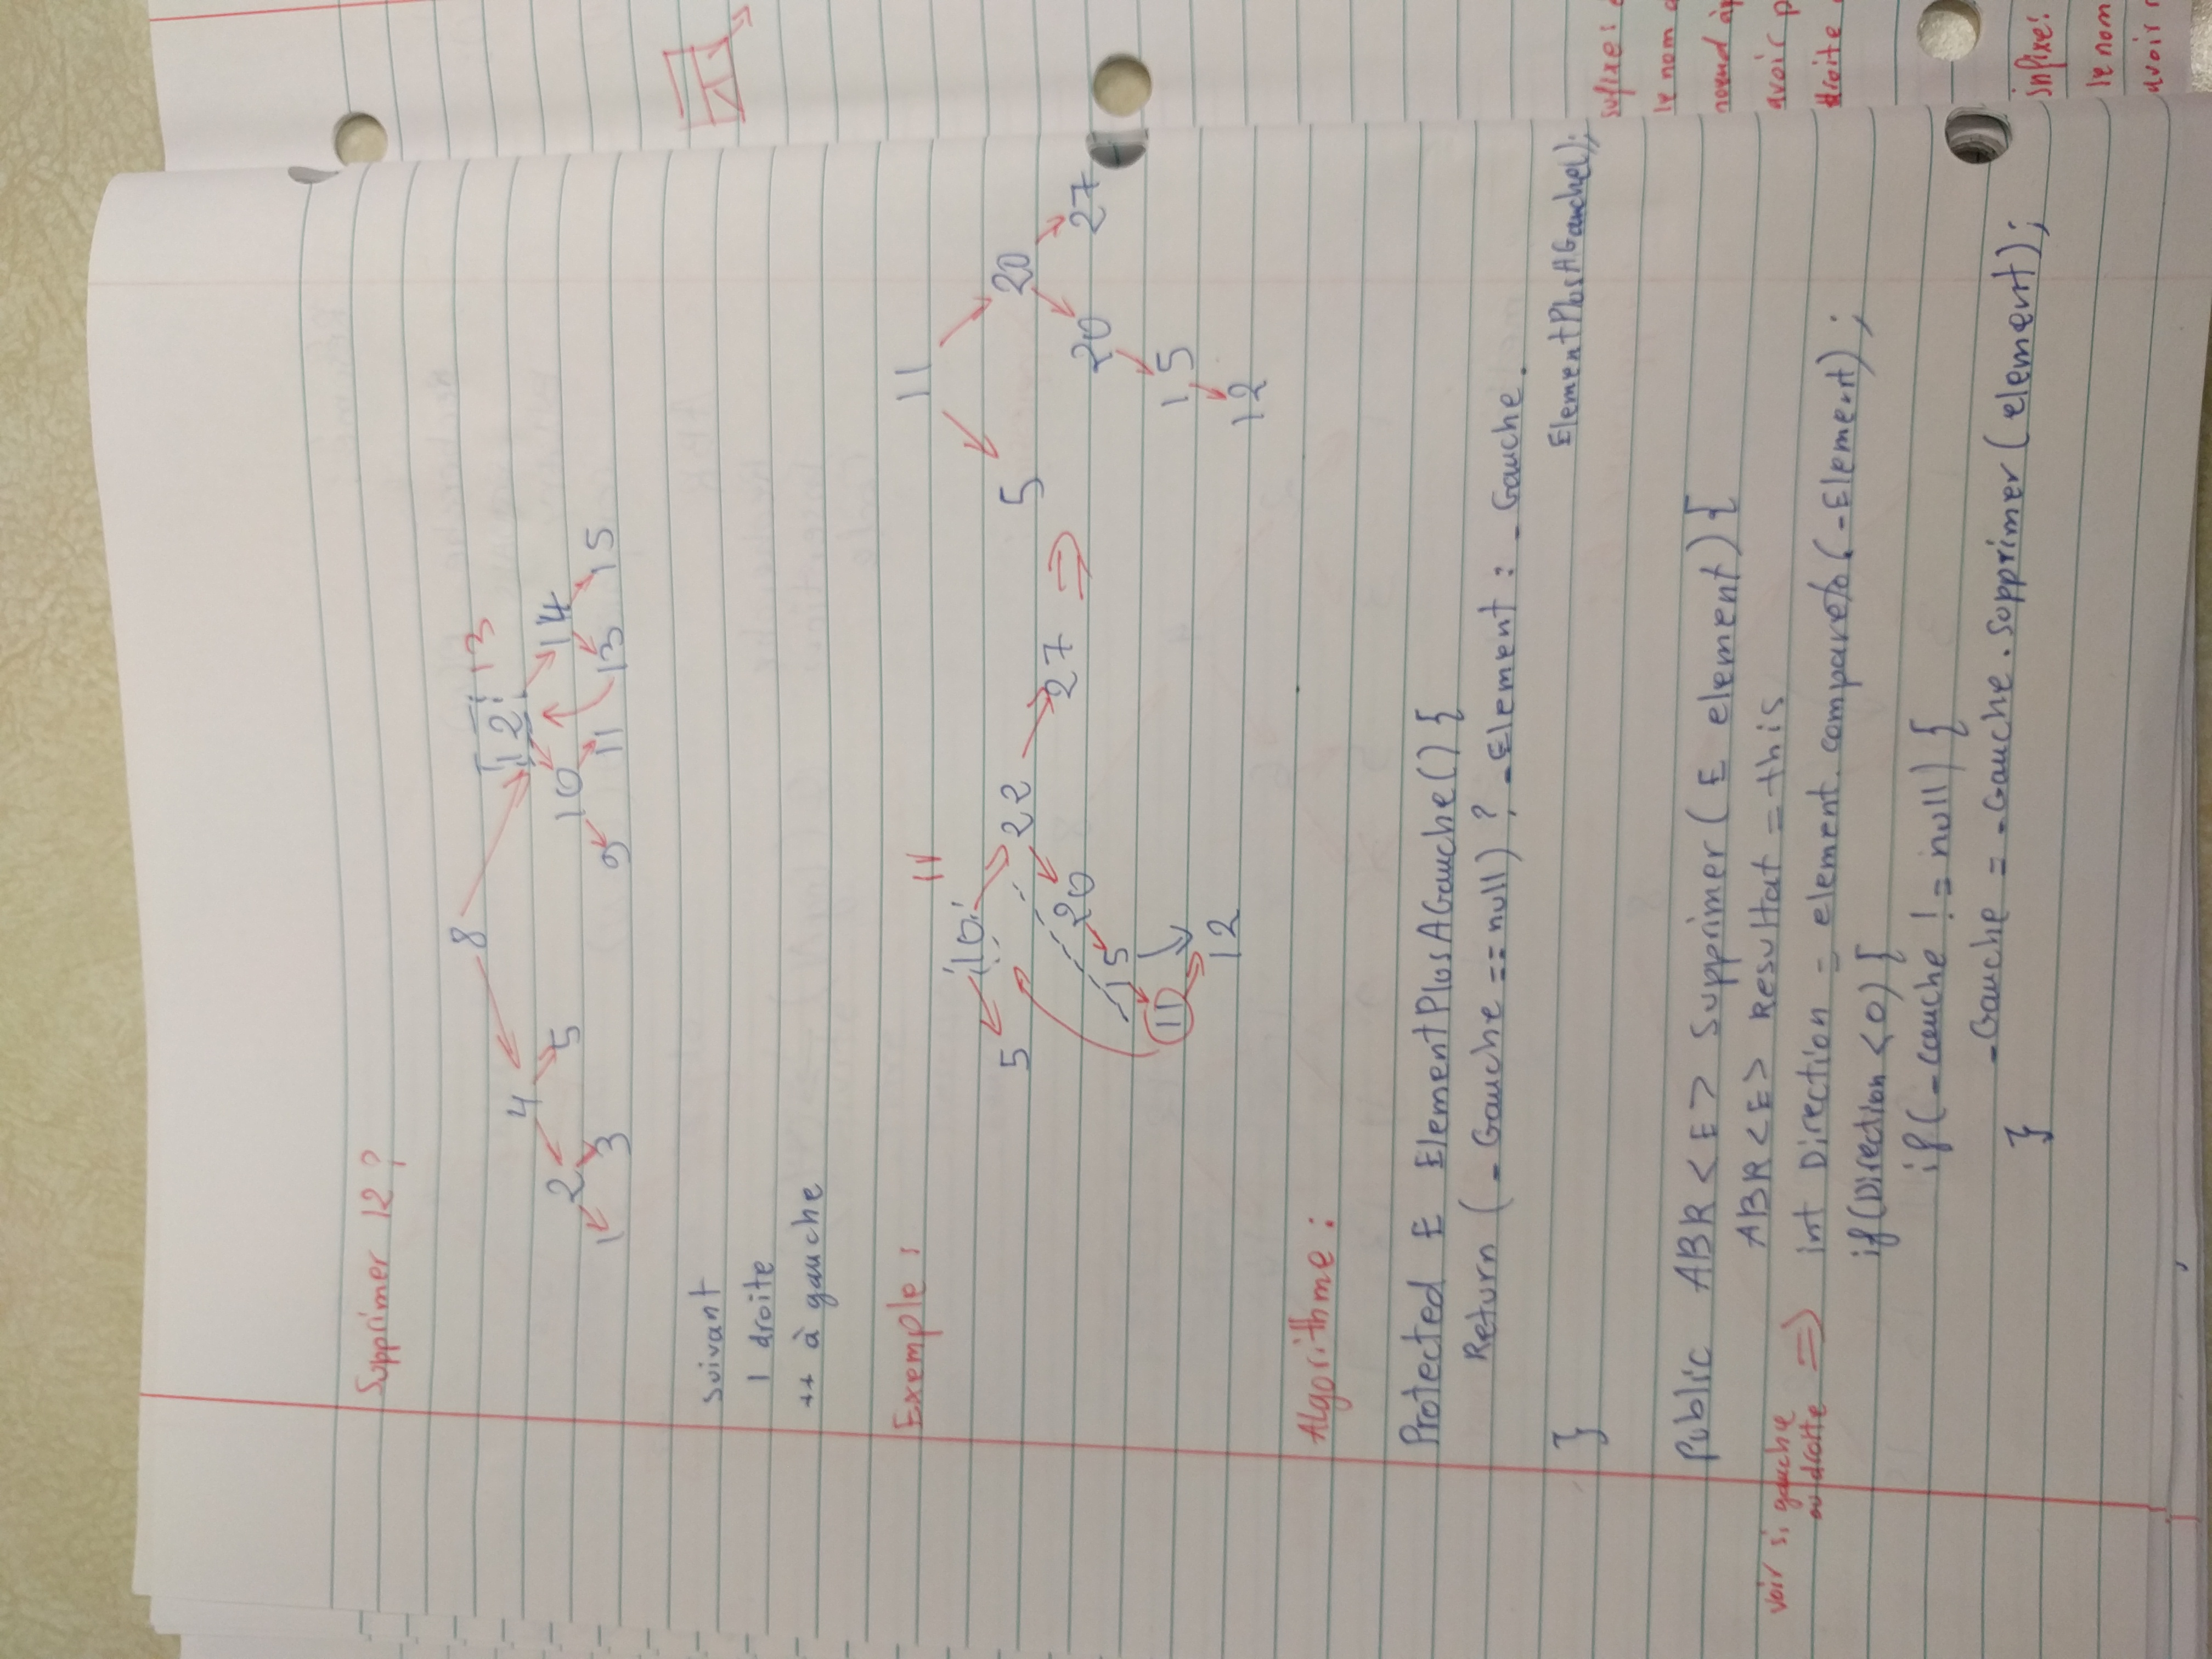 Supprimer 12 ?
8
4 12 13
2 5 10 14
1 3 9 11 13 15
suivant
1 droite
++ à gauche
Exemple :
11 11
10
5 22 5 20
20 27 ⇒ 20 27
15 15
11
12 12
Algorithme :
Protected E ElementPlusAGauche() {
Return (_Gauche == null) ? _Element : _Gauche.
ElementPlusAGauche();
}
Public ABR<E> Supprimer (E element) {
ABR<E> Resultat = this
voir si gauche
ou droite ⇒
int Direction = element.compareTo(_Element);
if(Direction < 0) {
if (_Gauche != null) {
_Gauche = _Gauche.Supprimer(element);
}
sufixe:
le nom
noeud
avoir
droite
infixe:
le nom
avoir